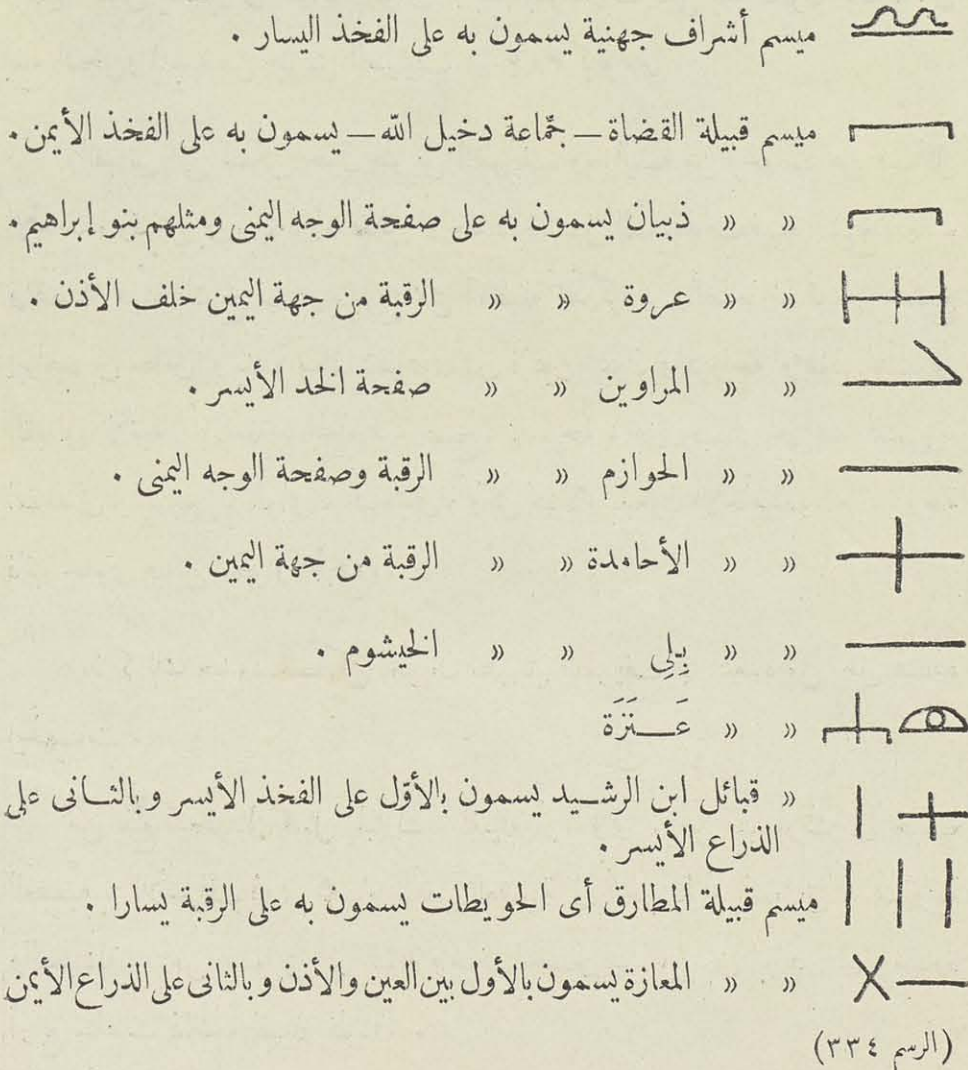 ميسم أشراف جهنية يسمون به على الفخذ اليسار .
ميسم قبيلة القضاة — جمَّاعة دخيل الله — يسمون به على الفخذ الأيمن .
» » ذبيان يسمون به على صفحة الوجه اليمنى ومثلهم بنو إبراهيم .
» » عروة » » الرقبة من جهة اليمين خلف الأذن .
» » المراوين » » صفحة الخد الأيسر .
» » الحوازم » » الرقبة وصفحة الوجه اليمنى .
» » الأحامدة » » الرقبة من جهة اليمين .
» » بِلِى » » الخيشوم .
» » عَنَزَة
» قبائل ابن الرشيد يسمون بالأوّل على الفخذ الأيسر وبالثانى على
الذراع الأيسر .
ميسم قبيلة المطارق أى الحويطات يسمون به على الرقبة يسارا .
» » المعازة يسمون بالأول بين العين والأذن وبالثانى على الذراع الأيمن
(الرسم ٣٣٤)